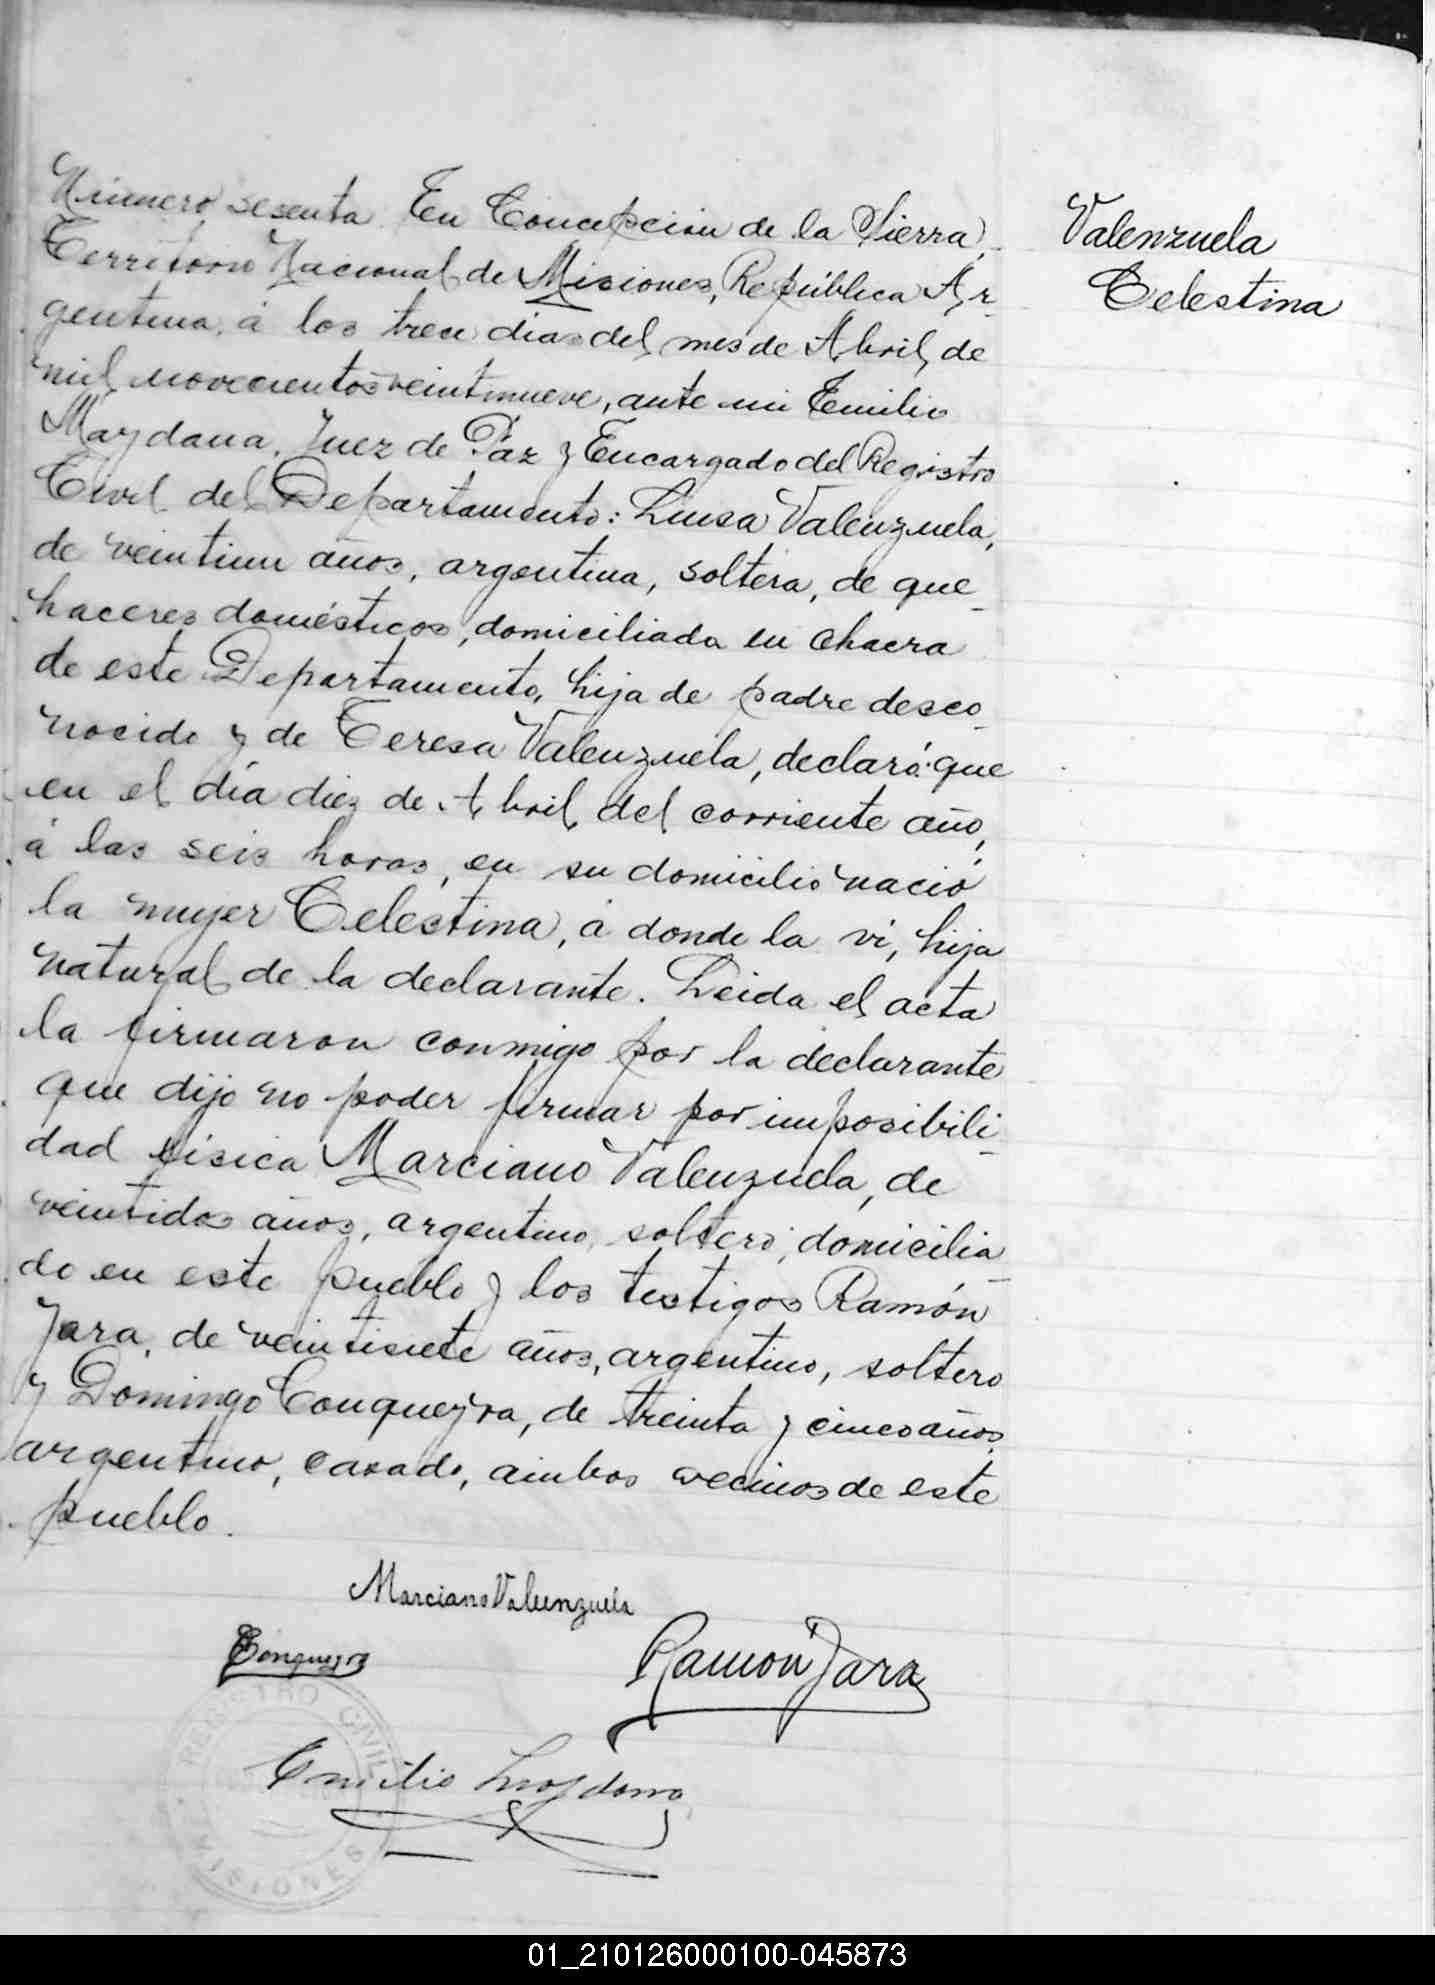 Número sesenta. En Concepción de la Sierra,
Territorio Nacional de Misiones, República Ar-
gentina, á los trece días del mes de Abril, de
mil novecientos veintinueve, ante mi Emilio
Maydana, Juez de Páz y Encargado del Registro
Civil del Departamento: Luisa Valenzuela,
de veintiun años, argentina, soltera, de que-
haceres domésticos, domiciliada en chacra
de este Departamento, hija de padre desco-
nocido y de Teresa Valenzuela, declaró: que
en el día diez de Abril del corriente año,
á las seis horas, en su domicilio nació
la mujer Celestina, á donde la ví, hija
natural de la declarante. Leida el acta
la firmaron conmigo por la declarante
que dijo no poder firmar por imposibili-
dad física Marciano Valenzuela, de
veintidos años, argentino, soltero, domicilia-
do en este pueblo y los testigos Ramón
Jara, de veintisiete años, argentino, soltero
y Domingo Conqueyra, de treinta y cinco años,
argentino, casado, ambos vecinos de este
pueblo.
Valenzuela
Celestina
Marciano Valuenzuela
Conqueyra
Ramón Jara
Emilio Maydana
REGISTRO CIVIL
MISIONES
01_210126000100-045873